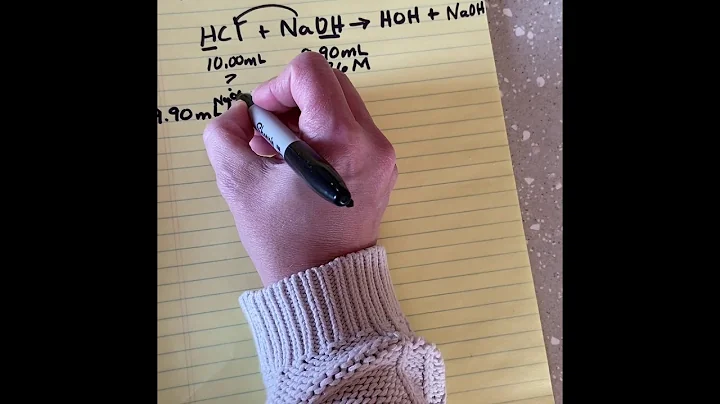 HCF + NaOH → HOH + NaOH
10.00mL .90mL
? M
9.90 mL